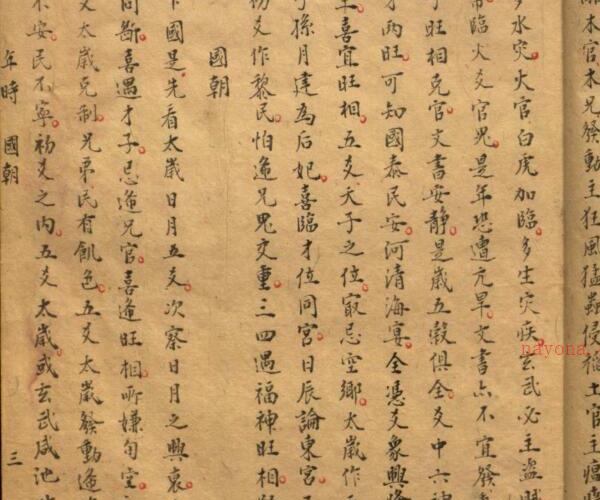 木官木兄發動主狂風猛蟲侵稻土官主瘟
水灾火官白虎加臨多生灾疾玄武必主盜
臨火爻官鬼是年恐遭亢旱文書亦不宜發
旺相克官文書安靜是歲五穀俱全爻中六神
才兩旺可知國泰民安河清海宴全憑爻象興隆
喜宜旺相五爻天子之位最忌空鄉太歲作
孫月建為后妃喜臨才位同宮日辰論東宮
初爻作黎民怕逢兄鬼交重三四遇福神旺相
國朝
國是先看太歲日月五爻次察日月之興衰
間斷喜遇才子忌逢兄官喜逢旺相所嫌旬空
太歲克制兄弟民有飢色五爻太歲發動逢
不安民不寧初爻之內五爻太歲或玄武咸池
年時 國朝 三
nayona